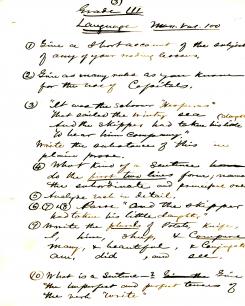 (3)
Grade III
Language Max. Val. 100
① Give a short account of the subject
of any of your reading lessons.
② Give as many rules as you know
for the use of Capitals.
③ "It was the schooner Hesperus
That sailed the wintry sea
And the skipper had taken his little
To bear him company."
Write the substance of this
plain prose.
④ What kind of a Sentence
do the first two lines form, name
the subordinate and principal
⑤ Analyse each in detail
⑥ Parse "And the skipper
had taken his little daughter"
⑦ Write the plural of Potato, knife,
him, ship, & Compare
many, & beautiful, & Conjugate
am, did, and, see.
⑩ What is a Sentence? Give
the imperfect and perfect tenses of
the verb "write"